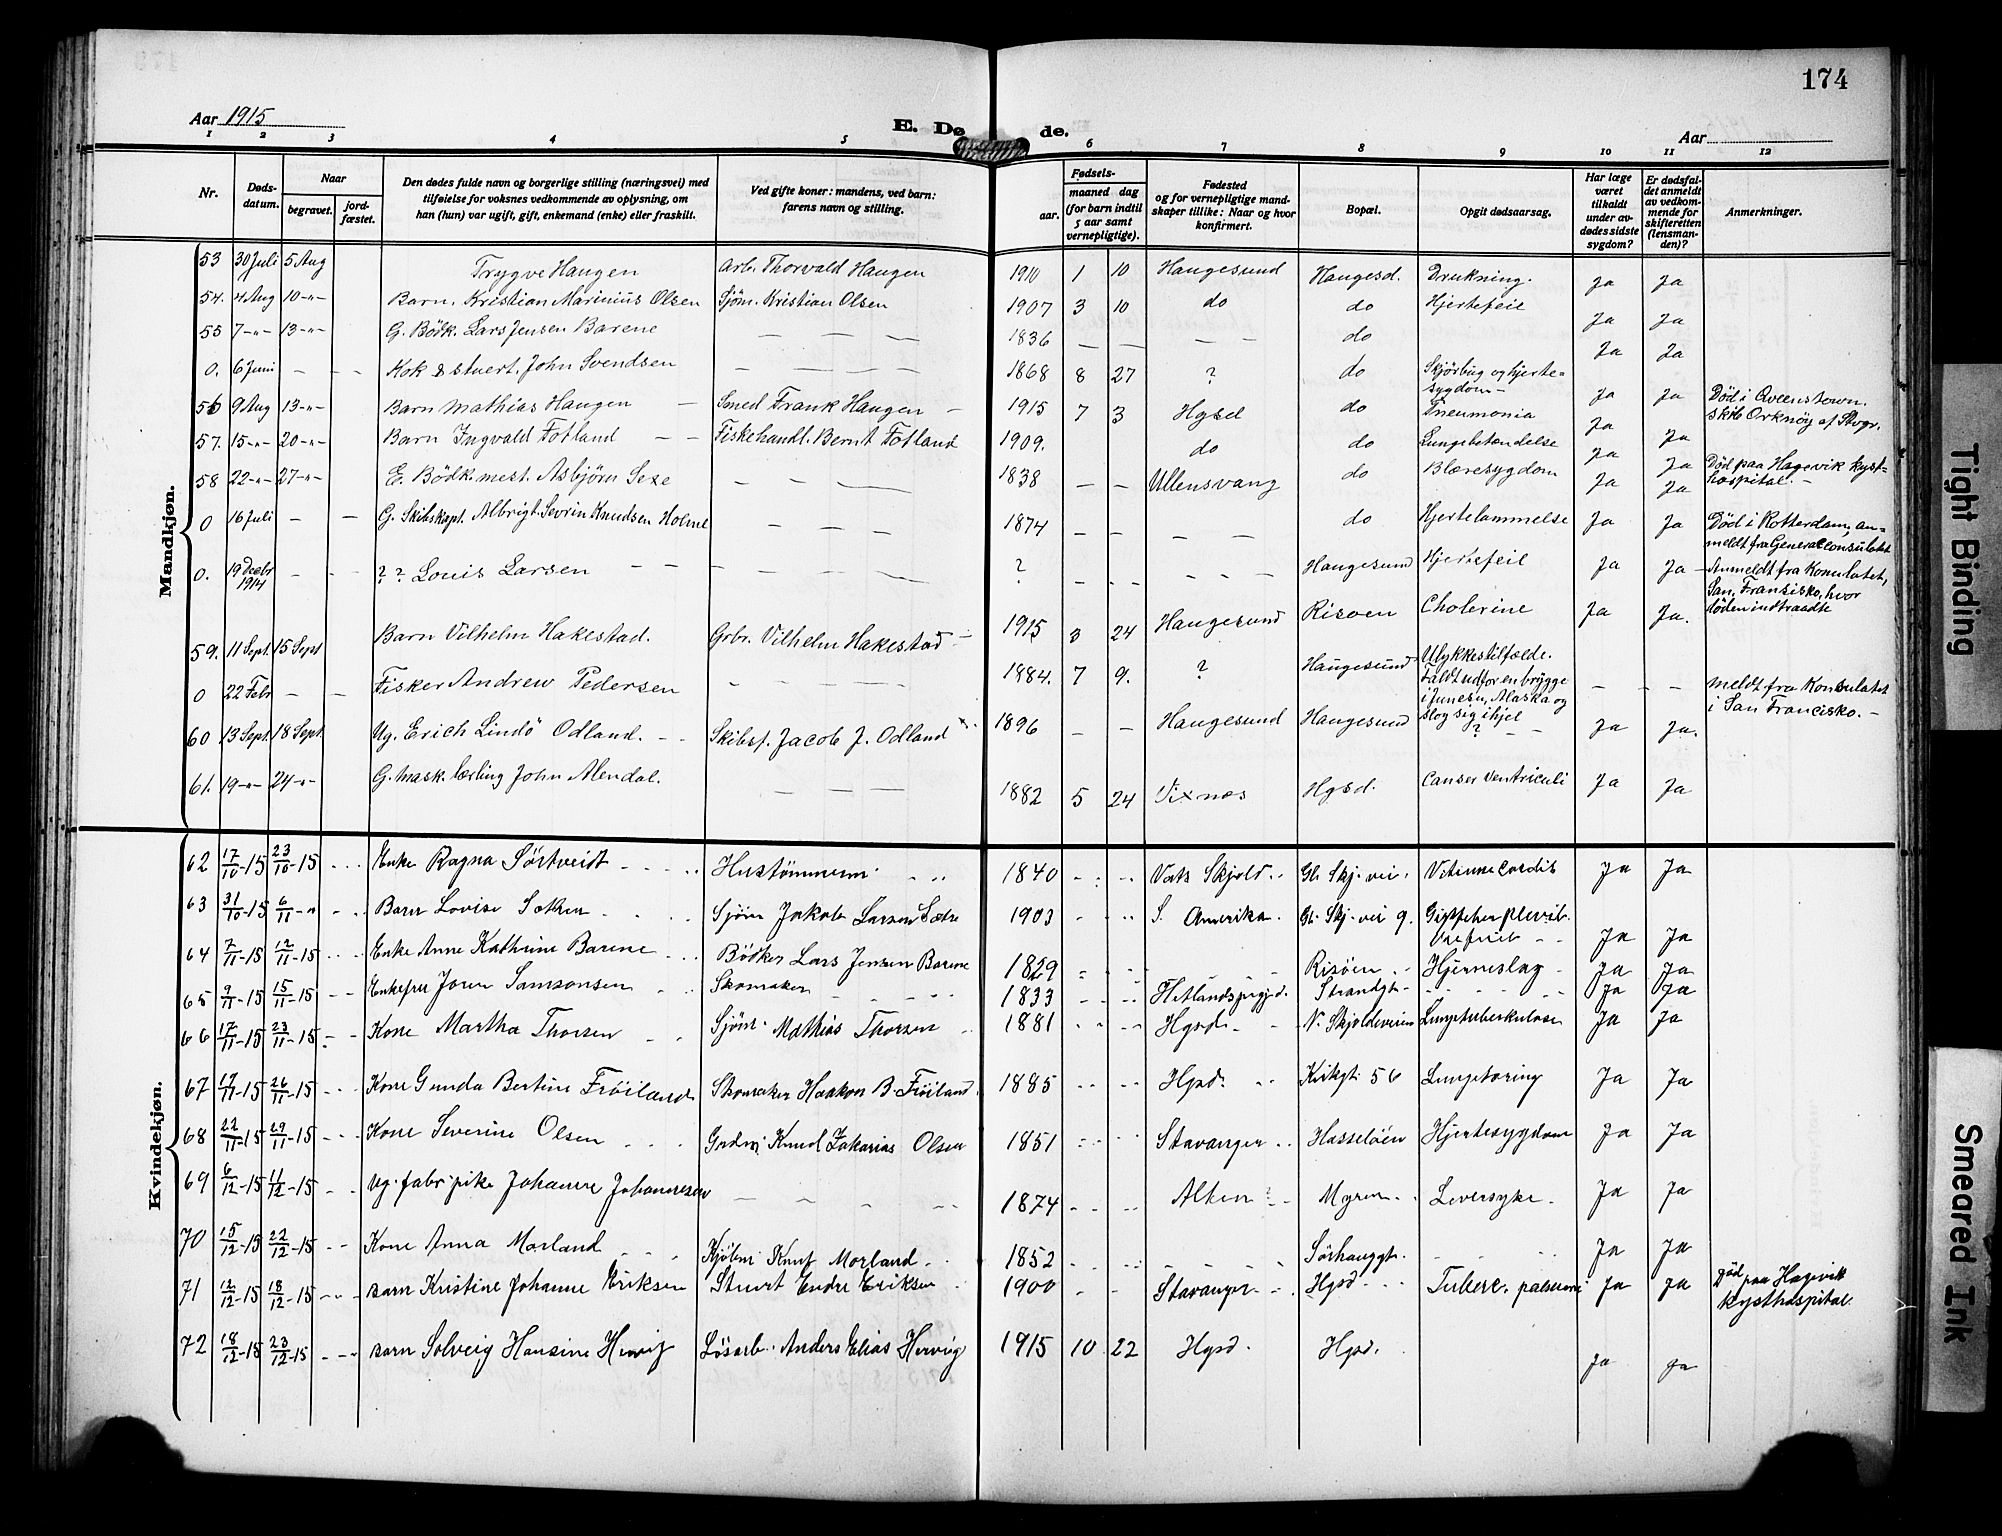 174
Aar 1915
E. Dø de.
Aar
1 2 3 4 5 6 7 8 9 10 11 12
Nr.
Døds-
datum.
Naar
begravet.
jord-
fæstet.
Den dødes fulde navn og borgerlige stilling (næringsvei) med
tilføielse for voksnes vedkommende av oplysning, om
han (hun) var ugift, gift, enkemand (enke) eller fraskilt.
Ved gifte koner: mandens, ved barn:
farens navn og stilling.
Fødsels-
aar.
maaned dag
(for barn indtil
5 aar samt
vernepligtige).
Fødested
og for vernepligtige mand-
skaper tillike: Naar og hvor
konfirmert.
Bopæl.
Opgit dødsaarsag.
Har læge
været
tilkaldt
under av-
dødes sidste
sygdom?
Er dødsfal-
det anmeldt
av vedkom-
mende for
skifteretten
(lensman-
den)?
Anmerkninger.
Mandkjøn.
53 30 Juli 5 Aug Trygve Haugen Arb. Thorvald Haugen 1910 1 10 Haugesund Haugesd. Drukning. Ja Ja
54. 4 Aug 10-"- Barn. Kristian Marinius Olsen Sjöm. Kristian Olsen 1907 3 10 do do Hjertefeil Ja Ja
55 7-"- 13-"- G. Bödk. Lars Jensen Barene — — — 1836 — — — — do Ja Ja
0. 6 Juni — — — Kok & stuert. John Svendsen — — — — 1868 8 27 ? do Skjörbug og hjerte=
sygdom — Ja Ja Död i Queenstown.
skib Orknöy af Stvgr.
56 9 Aug 13-"- Barn Mathias Haugen — Smed Frank Haugen — 1915 7 3 Hgsd do Pneumonia Ja
57. 15-"- 20-"- Barn Ingvald Fotland — — Fiskehandl. Bernt Fotland 1909. do do Lungebetændelse Ja Ja
58 22-"- 27-"- E. Bödk. mest. Asbjörn Sexe — — — 1838 — — Ullensvang do Blæresygdom Ja Ja Död paa Hagevik kyst=
hospital. —
0 16 Juli — — G. Skibskapt. Albrigt Sevrin Knudsen Holme — — 1874 — — — — do Hjertelammelse Ja Ja Död i Rotterdam, an=
meldt fra Generalconsulatet
0. 19 Decbr
1914 — — — ? ? Louis Larsen — — — — — ? — — — — Haugesund Hjertefeil Ja Ja — Anmeldt fra Konsulatet,
San Franzisko, hvor
döden indtraadte
59. 11 Sept. 15 Sept Barn Vilhelm Hakestad. Grbr. Vilhelm Hakestad — 1915 3 24 Haugesund Risöen Cholerine Ja Ja.
0 22 Febr — — Fisker Andrew Pedersen — — — 1884. 7 9. ? Haugesund Ulykkestilfælde.
Faldt ud for en brygge
i Juneau, Alaska og
slog sig ihjel — — — meldt fra Konsulatet
i San Francisko. —
60 13 Sept. 18 Sept. Ug. Erich Lindö Odland. — — Skibsf. Jacob J. Odland 1896 — — Haugesund Haugesund ? — — Ja Ja.
61. 19-"- 24-"- G. mask. lærling John Alendal. — — — 1882 5 24 Vixnes Hgsd. Canser Ventriculi Ja Ja
Kvindekjøn.
62 17/10-15 23/10-15 Enke Ragna Sörtveidt Hustömmerm. 1840 Vats Skjold. Gl. Skj. vei. Vitium Cordis Ja Ja
63 31/10-15 6/11-" Barn Lovise Sæthre Sjöm Jakob Larsen Sædre 1903 S. Amerika. Gl. Skj. vei 9. Gigtfeber plevit.
Ja Ja
64 7/11-15 12/11-15 Enke Anne Kathrine Barene Bödker Lars Jensen Barene 1829 Risöen Hjerneslag Ja Ja
65 9/11-15 15/11-15 Enkefru Joren Samsonsen Skomaker 1833 Hetlands prgjd. Strandgt. Ja Ja
66 17/11-15 23/11-15 Kone Martha Thorsen Sjöm. Mathias Thorsen 1881 Hgsd. N. Skjoldeveien Lungetuberkulose Ja Ja
67 19/11-15 26/11-15 Kone Gunda Bertine Fröiland Skomaker Haakon B. Fröiland. 1885 Hgsd. Kirkgt. 56 Lungetæring Ja Ja
68 22/11-15 29/11-15 Kone Severine Olsen Grdm. Knud Zakarias Olsen 1851 Stavanger Hasselöen Hjertesygdom Ja Ja
69 6/12-15 11/12-15 Ug. fabr. pike Johanne Johannesen — — 1874 Alten ? Myren Leversyke. Ja Ja
70 15/12-15 22/12-15 Kone Anna Morland Kjöbm. Knut Morland. 1852 Sörhauggt. Ja Ja
71 12/12-15 18/12-15 Barn Kristine Johanne Eriksen Stuert Endre Eriksen 1900 Stavanger Hgsd Tuberc. Ja Ja Död paa Hagevik
kysthospital.
72 18/12-15 23/12-15 Barn Solveig Hansine Hervig Lösarb. Anders Elias Hervig 1915 10 22 Hgsd. Hgsd. Ja Ja
Tight Binding
Smeared Ink